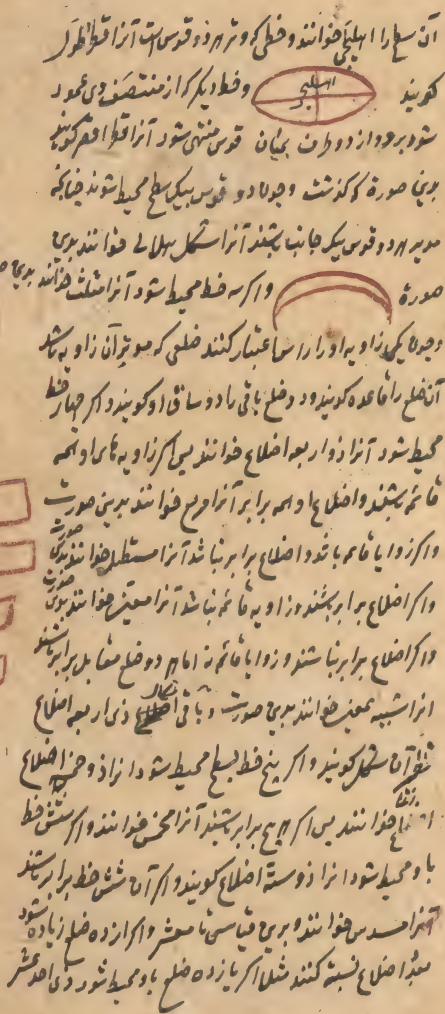 آن سطح را اهلیلجی خوانند و خطی که وتر هر دو قوس است آنرا قطر اطول
کویند اهلیلجی و خط دیکر که از منتصف وی عمود
شود برو و از دو طرف بمیان قوس منتهی شود آنرا قطر اقصر کویند
بدین صورة که کذشت و چون دو قوس بیک سطح محیط شوند چنانکه
هر دو قوس بیک جانب باشند آنرا شکل هلالی خوانند بدین
صورة و اکر سه خط محیط شود آنرا مثلث خوانند بدین
و چون یکی زاویه او را راسها اعتبار کنند ضلعی که موتر آن زاویه باشد
آن ضلع را قاعده کویند و دو ضلع باقی را دو ساق او کویند و اکر چهار خط
محیط شود آنرا ذو اربعه اضلاع خوانند پس اکر زاویه های او همه
قائمه باشند و اضلاع او همه برابر آنرا مربع خوانند بدین صورت
و اکر زوایا قائمه باشد و اضلاع برابر نباشد آنرا مستطیل خوانند بدین صورت
و اکر اضلاع برابر باشند و زاویه قائمه نباشد آنرا معین خوانند بدین صورت
و اکر اضلاع برابر نباشند و زوایا قائمه نه اما هر دو ضلع مقابل برابر باشند
آنرا شبیه بمعین خوانند بدین صورت و باقی اشکال ذی اربعه اضلاع
آن شکل کویند و اکر پنج خط بسطح محیط شود آنرا ذو خمسه اضلاع
خوانند پس اکر هر پنج برابر باشند آنرا مخمس خوانند و اکر شش خط
باو محیط شود آنرا ذو سته اضلاع کویند و اکر آن شش خط برابر باشند
آنرا مسدس خوانند و برین قیاس تا معشر و اکر از ده ضلع زیاده شود
بعدد اضلاع نسبة کنند مثلا اکر یازده ضلع باو محیط شود ذی احد عشر